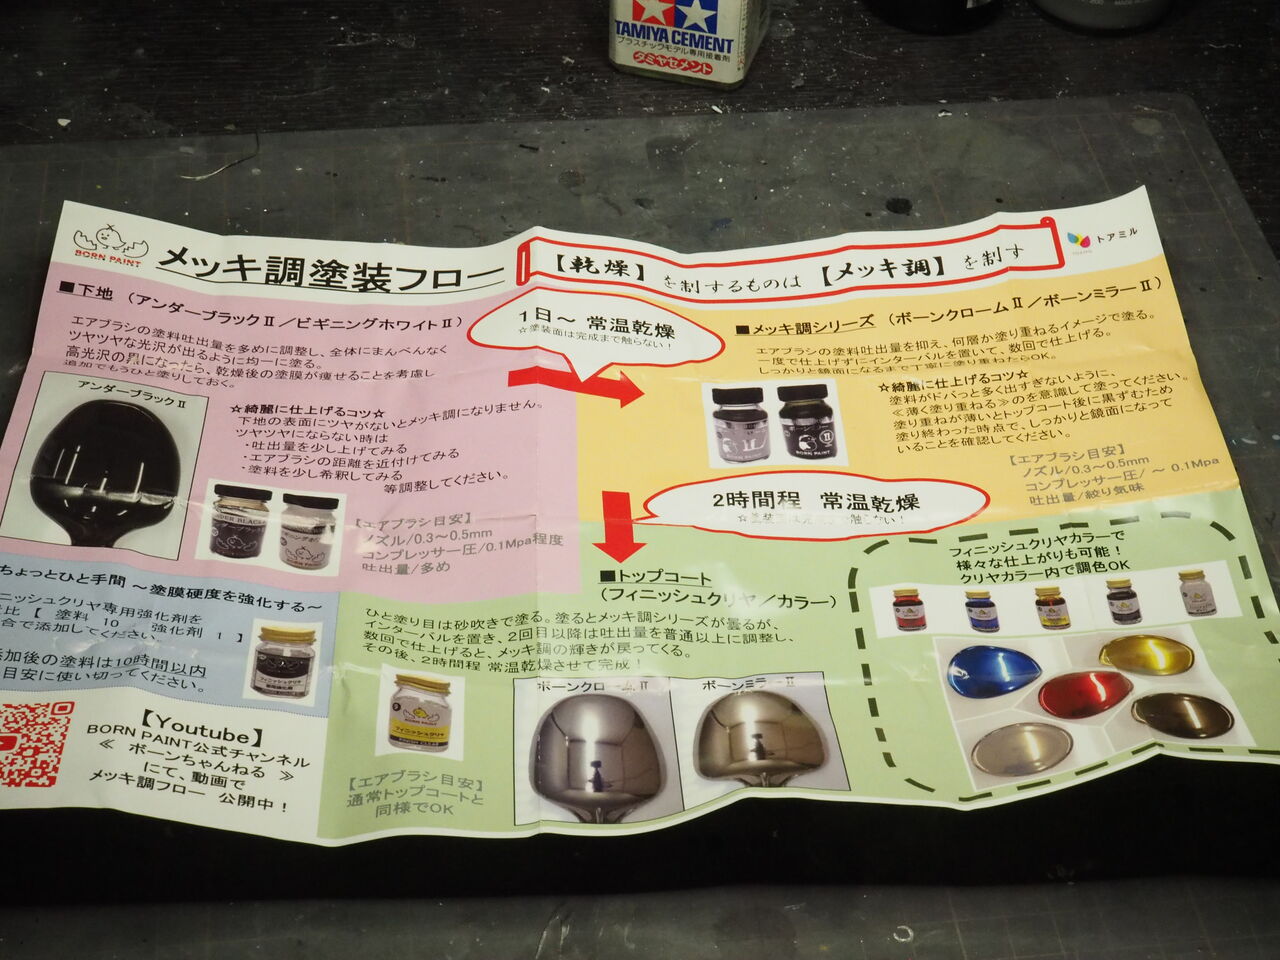 TAMIYA CEMENT
プラスチックモデル専用接着剤
タミヤセメント
BORN PAINT
メッキ調塗装フロー
【乾燥】を制するものは【メッキ調】を制す
トアミル
■下地 (アンダーブラックⅡ／ビギニングホワイトⅡ)
エアブラシの塗料吐出量を多めに調整し、全体にまんべんなく
ツヤツヤな光沢が出るように均一に塗る。
高光沢の黒になったら、乾燥後の塗膜が痩せることを考慮し
追加でもうひと塗りしておく。
アンダーブラックⅡ
☆綺麗に仕上げるコツ☆
下地の表面にツヤがないとメッキ調になりません。
ツヤツヤにならない時は
・吐出量を少し上げてみる
・エアブラシの距離を近付けてみる
・塗料を少し希釈してみる
等調整してください。
【エアブラシ目安】
ノズル/0.3～0.5mm
コンプレッサー圧/0.1Mpa程度
吐出量/多め
1日～ 常温乾燥
☆塗装面は完成まで触らない！
■メッキ調シリーズ (ボーンクロームⅡ／ボーンミラーⅡ)
エアブラシの塗料吐出量を抑え、何層か塗り重ねるイメージで塗る。
一度で仕上げずにインターバルを置いて、数回で仕上げる。
しっかりと鏡面になるまで丁寧に塗り重ねたらOK。
☆綺麗に仕上げるコツ☆
塗料がドバっと多く出すぎないように、
≪薄く塗り重ねる≫のを意識して塗ってください。
塗り重ねが薄いとトップコート後に黒ずむため
塗り終わった時点で、しっかりと鏡面になって
いることを確認してください。
【エアブラシ目安】
ノズル/0.3～0.5mm
コンプレッサー圧/ ～ 0.1Mpa
吐出量/絞り気味
BORN PAINT
2時間程 常温乾燥
ちょっとひと手間 ～塗膜硬度を強化する～
ニッシュクリヤ専用強化剤を
比【 塗料 10 : 強化剤 1 】
合で添加してください。
添加後の塗料は10時間以内
目安に使い切ってください。
フィニッシュクリヤ
【Youtube】
BORN PAINT公式チャンネル
≪ ボーンちゃんねる ≫
にて、動画で
メッキ調フロー 公開中！
■トップコート
(フィニッシュクリヤ／カラー)
ひと塗り目は砂吹きで塗る。塗るとメッキ調シリーズが曇るが、
インターバルを置き、2回目以降は吐出量を普通以上に調整し、
数回で仕上げると、メッキ調の輝きが戻ってくる。
その後、2時間程 常温乾燥させて完成！
BORN PAINT
フィニッシュクリヤ
【エアブラシ目安】
通常トップコートと
同様でOK
ボーンクロームⅡ
ボーンミラーⅡ
フィニッシュクリヤカラーで
様々な仕上がりも可能！
クリヤカラー内で調色OK